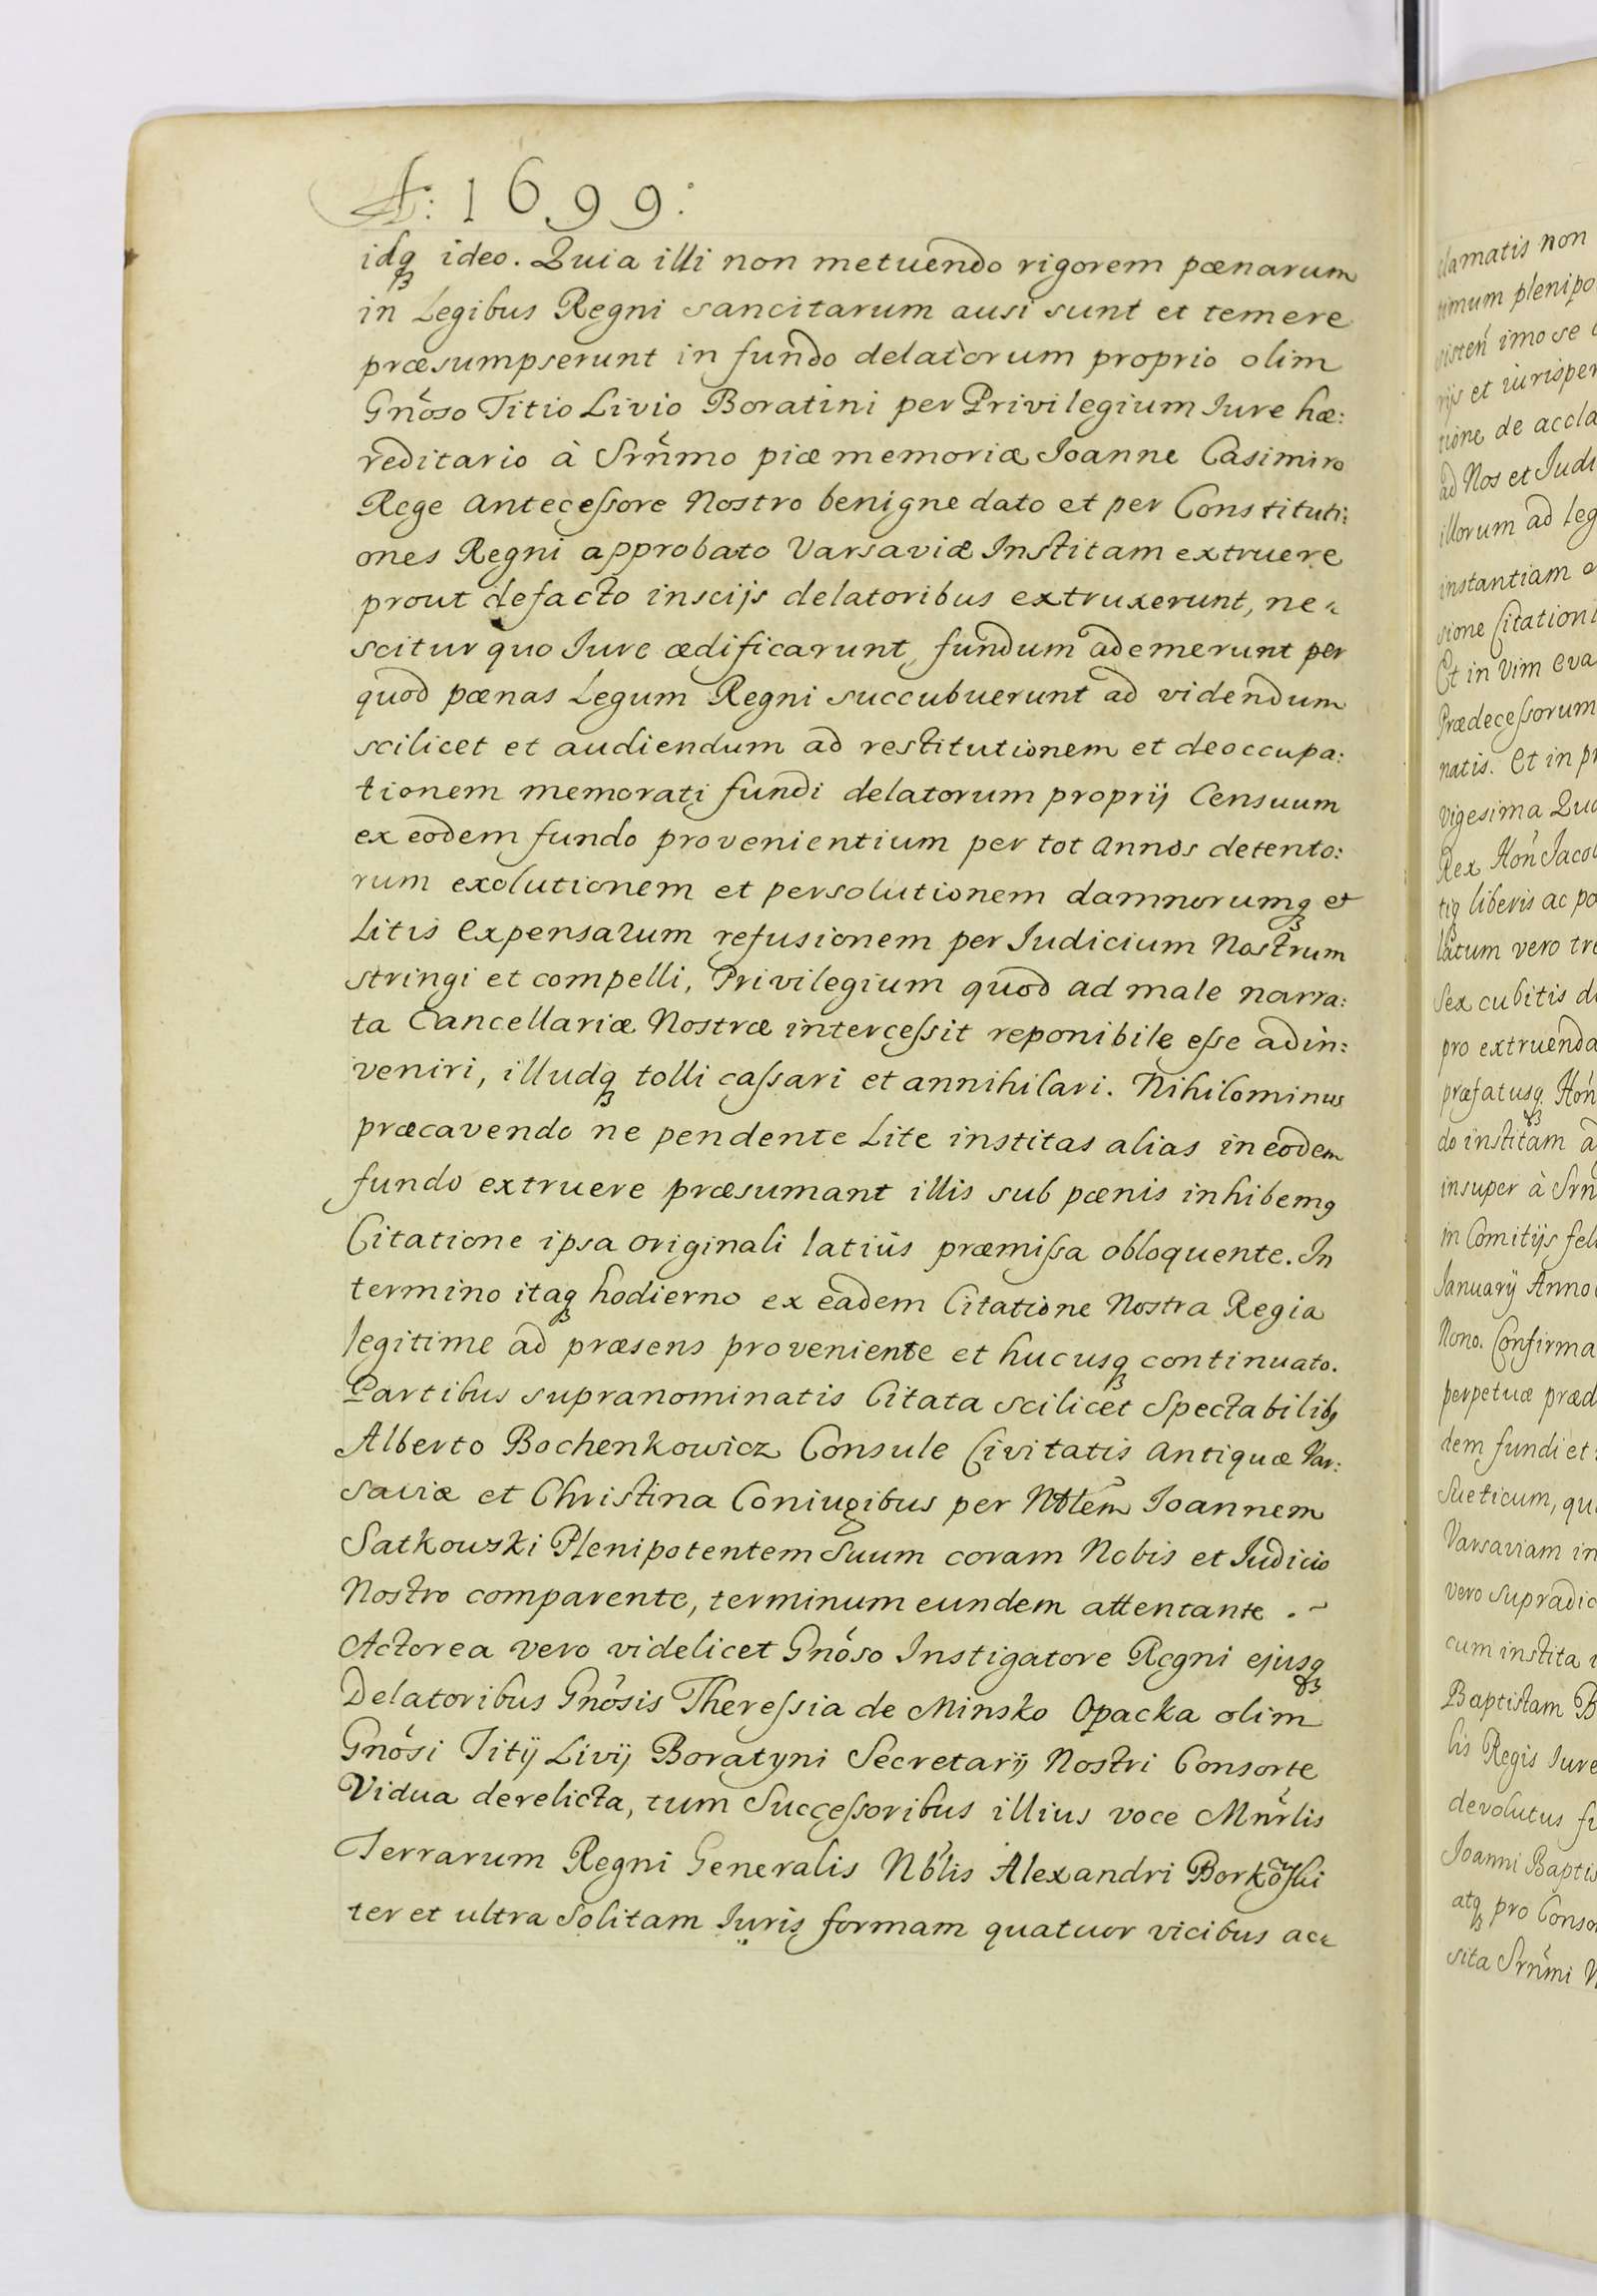 A: 1699:
idq ideo. Quia illi non metuendo rigorem pœnarum
in Legibus Regni sancitarum ausi sunt et temere
præsumpserunt in fundo delatorum proprio olim
Gnoso Titio Livio Boratini per Privilegium Iure hæ:
reditario à Srnmo piæ memoriæ Joanne Casimiro
Rege Antecessore Nostro benigne dato et per Constituti:
ones Regni approbato Varsaviæ Institam extruere
prout defacto inscijs delatoribus extruxerunt, ne-
scitur quo Iure ædificarunt, fundum ademerunt per
quod pœnas Legum Regni succubuerunt ad videndum
scilicet et audiendum ad restitutionem et deoccupa:
tionem memorati fundi delatorum proprij Censuum
ex eodem fundo provenientium per tot annos detento:
rum exolutionem et persolutionem damnorumq et
Litis Expensarum refusionem per Iudicium Nostrum
stringi et compelli, Privilegium quod ad male narra:
ta Cancellariæ Nostræ intercessit reponibile esse adin:
veniri, illudq tolli cassari et annihilari. Nihilominus
præcavendo ne pendente Lite institas alias in eodem
fundo extruere præsumant illis sub pœnis inhibemq
Citatione ipsa originali latiùs præmissa obloquente. In
termino itaq hodierno ex eadem Citatione Nostra Regia
legitime ad præsens proveniente et hucusq continuato.
Partibus supranominatis Citata scilicet Spectabilibq
Alberto Bochenkowicz Consule Civitatis Antiquæ Var:
saviæ et Christina Coniugibus per Nblem Joannem
Satkowski Plenipotentem Suum coram Nobis et Iudicio
Nostro comparente, terminum eundem attentante . ~
Actorea vero videlicet Gnoso Instigatore Regni ejusq
Delatoribus Gnosis Theressia de Minsko Opacka olim
Gnosi Titij Livij Boratyni Secretarij Nostri Consorte
Vidua derelicta, tum Successoribus illius voce Mnrlis
Terrarum Regni Generalis Nblis Alexandri Borkoski
ter et ultra solitam Iuris formam quatuor vicibus ac-
clamatis non
plenipo
imo se
et iurisper
de accla
ad Nos et Judi
illorum ad Leg
instantiam
sione Citationi
Et in Vim eva
Prædecessorum
natis. Et in pr
Vigesima Qua
Rex Hon Jacob
tiq liberis ac po
latum vero tre
Sex cubitis
pro extruenda
præfatusq Hon
do institam
insuper à Srn
in Comitijs fel
Ianuarij Anno
Nono. Confirma
perpetuæ præd
dem fundi et
Sueticum, qu
Varsaviam in
vero supradic
cum instita
Baptistam B
lis Regis Iure
devolutus
Joanni Baptis
atq pro Conso
sita Srnmi